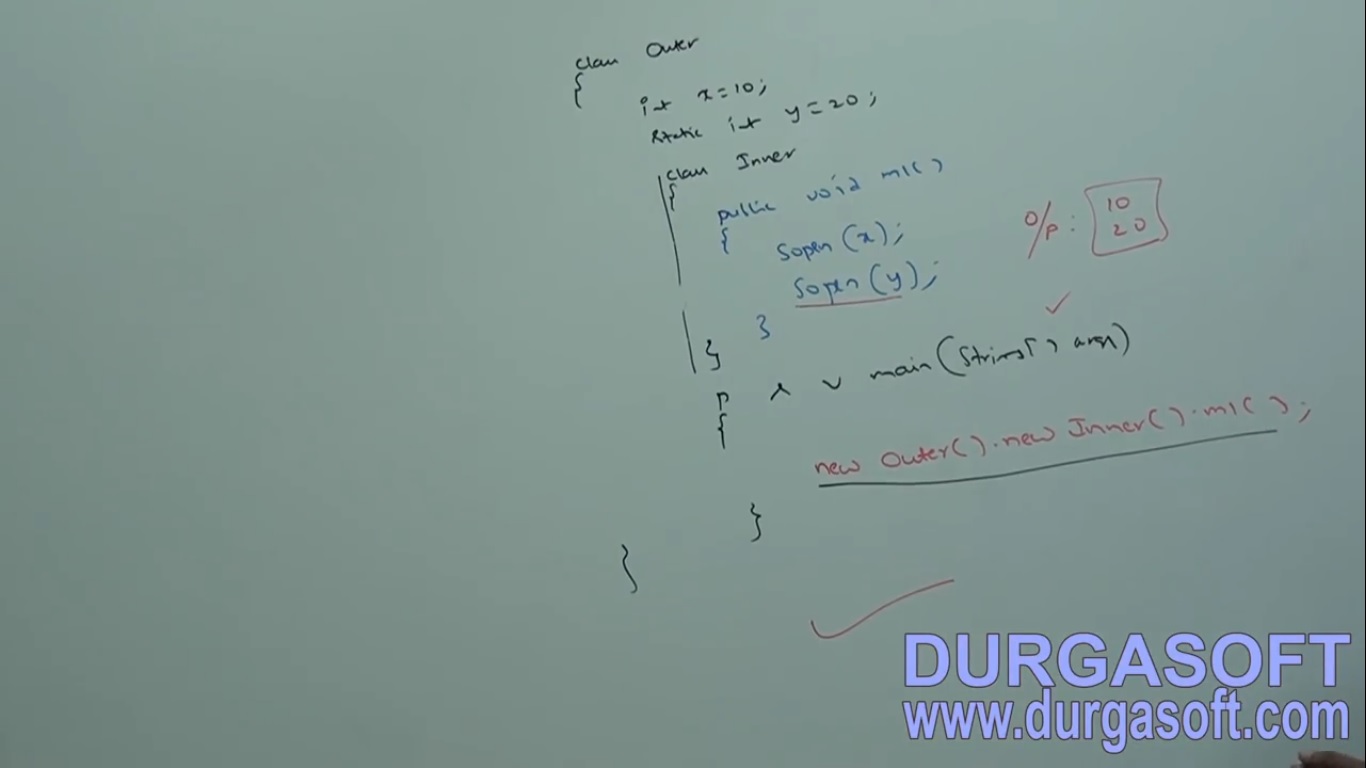 class Outer
{
int x=10;
static int y=20;
class Inner
{
public void m1()
{
Sopln(x);
Sopln(y);
}
}
O/P: 10
20
p s v main(String[] args)
{
new Outer().new Inner().m1();
}
}
DURGASOFT
www.durgasoft.com